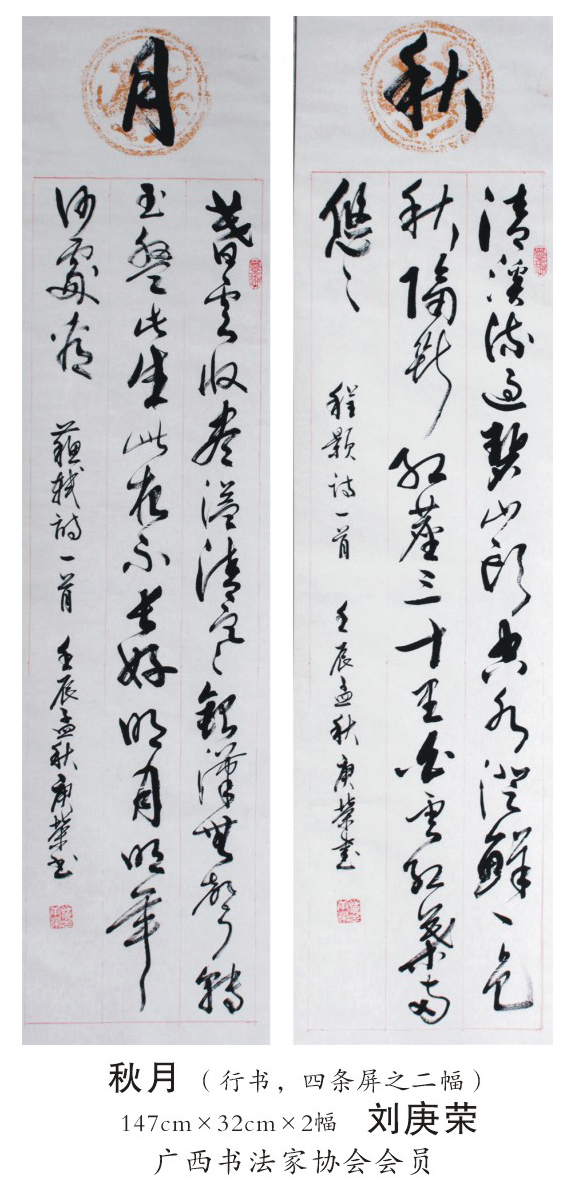 秋
清溪流過碧山頭空水澄鮮一色
秋隔斷紅塵三十里白雲紅葉兩
悠々
程顥詩一首 壬辰孟秋庚榮書
月
暮雲收盡溢清寒銀漢無聲轉
玉盤此生此夜不長好明月明年
何處看
蘇軾詩一首 壬辰孟秋庚榮書
秋月（行书，四条屏之二幅）
147cm×32cm×2幅 刘庚荣
广西书法家协会会员